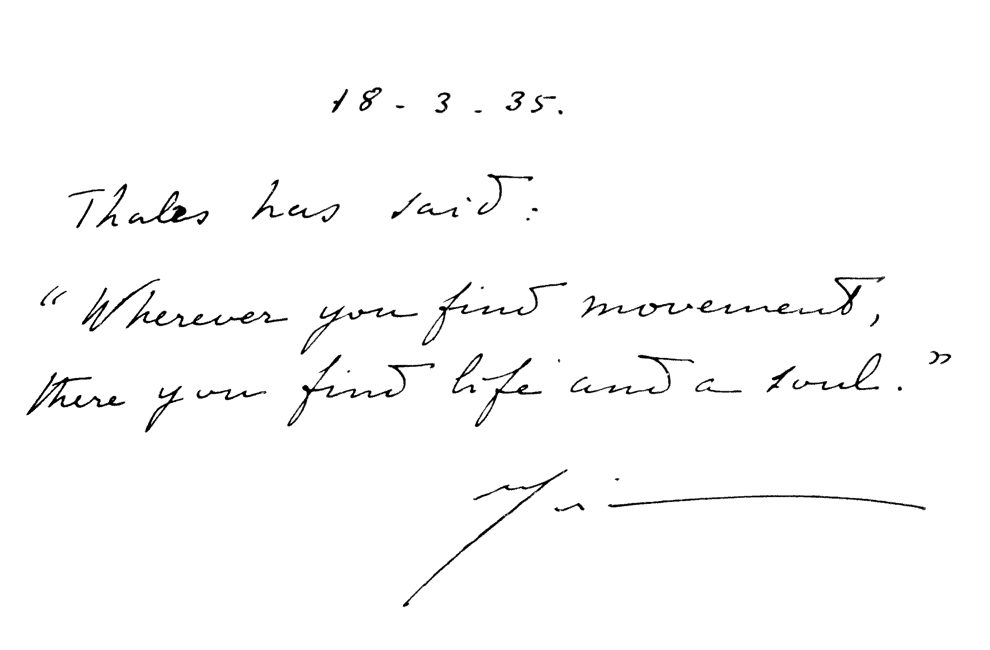 18 - 3 - 35.
Thales has said:
“Wherever you find movement,
there you find life and a soul.”